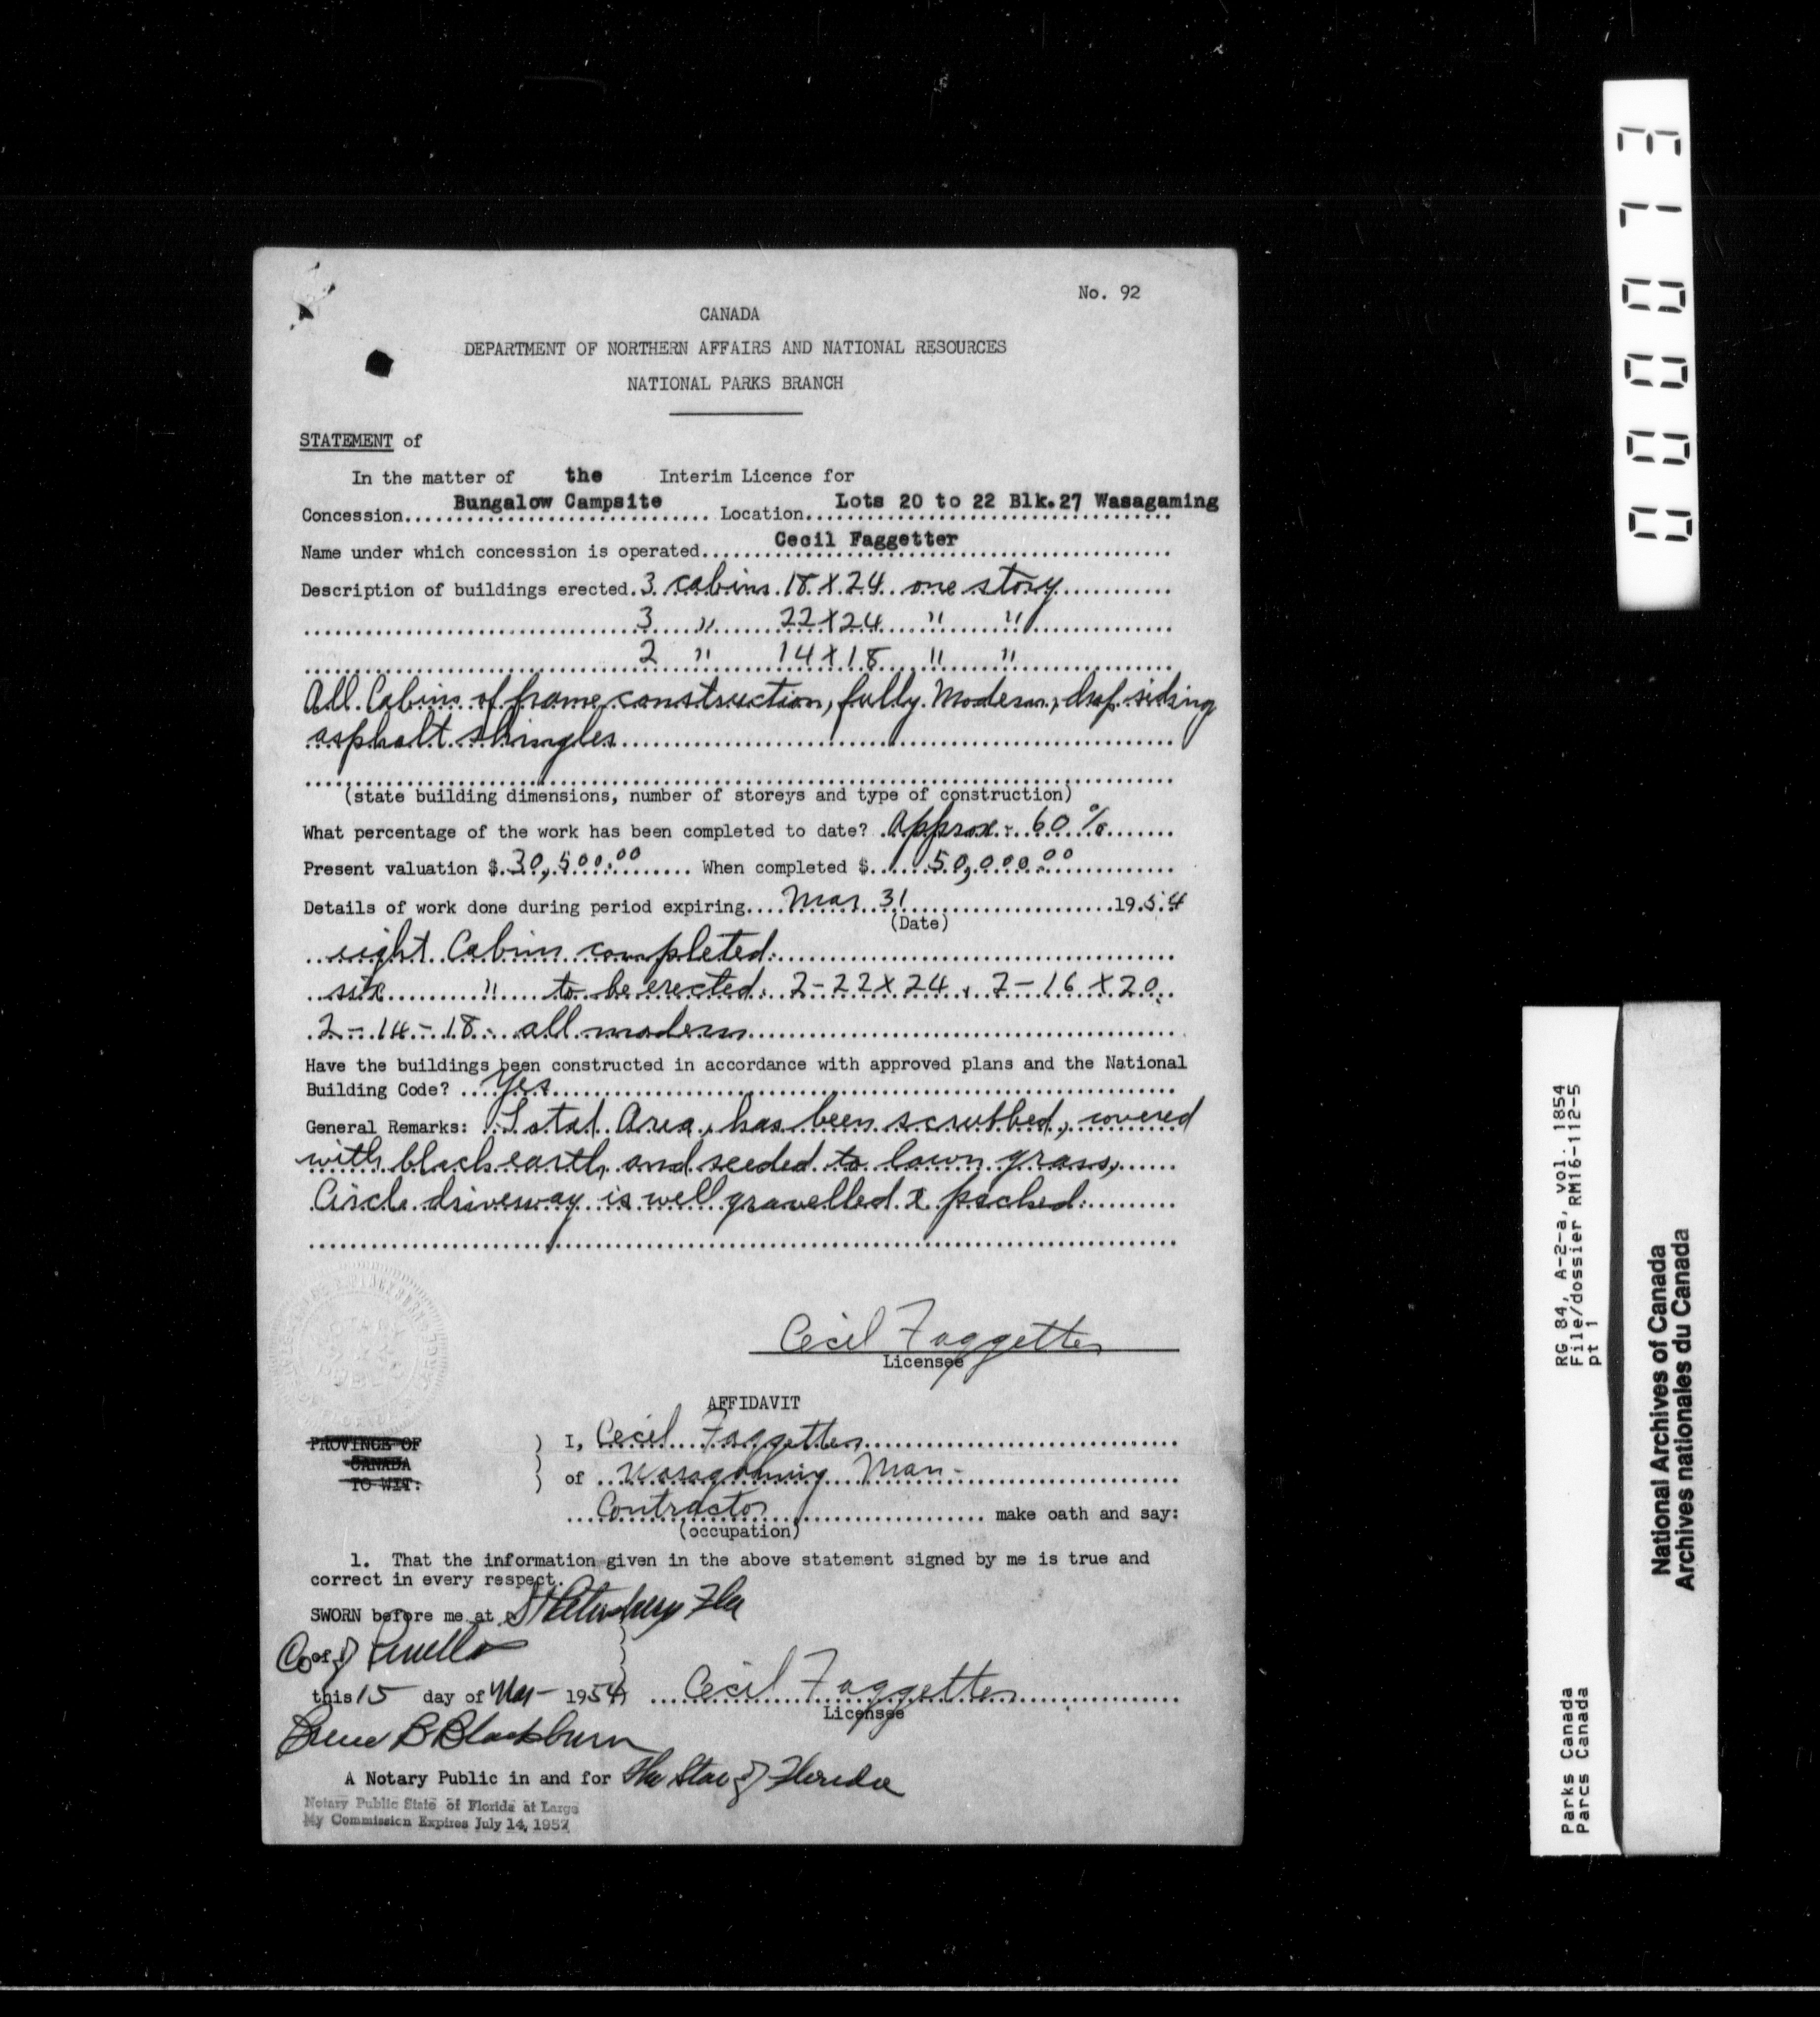 No. 92
CANADA
DEPARTMENT OF NORTHERN AFFAIRS AND NATIONAL RESOURCES
NATIONAL PARKS BRANCH
STATEMENT of
In the matter of the Interim Licence for
Concession Bungalow Campsite Location Lots 20 to 22 Blk.27 Wasagaming
Name under which concession is operated Cecil Faggetter
Description of buildings erected. 3 cabins 18 X 24 one story
3 " 22 X 24 " "
2 " 14 X 18 " "
All Cabins of frame construction, fully Modern, drop siding
asphalt shingles
(state building dimensions, number of storeys and type of construction)
What percentage of the work has been completed to date? approx. 60%
Present valuation $ 30,500.00 When completed $ 50,000.00
Details of work done during period expiring Mar 31 1954
(Date)
eight Cabins completed.
six " to be erected. 2-22 X 24, 2-16 X 20.
2-14-18. all modern
Have the buildings been constructed in accordance with approved plans and the National
Building Code? Yes
General Remarks: Total Area, has been scrubbed, covered
with black earth, and seeded to lawn grass,
Circle driveway is well gravelled & packed.
Cecil Faggetter
Licensee
AFFIDAVIT
PROVINCE OF
CANADA
TO WIT:
I, Cecil Faggetter
of Wasagaming Man-
Contractor make oath and say:
(occupation)
1. That the information given in the above statement signed by me is true and
correct in every respect.
SWORN before me at St Petersburg Fla
Co of Pinellas
this 15 day of Mar- 1954 Cecil Faggetter
Licensee
Irene B Blackburn
A Notary Public in and for The State of Florida
Notary Public State of Florida at Large
My Commission Expires July 14, 1957
00073
RG 84, A-2-a, vol. 1854
File/dossier RM16-112-5
pt 1
Parks Canada
Parcs Canada
National Archives of Canada
Archives nationales du Canada